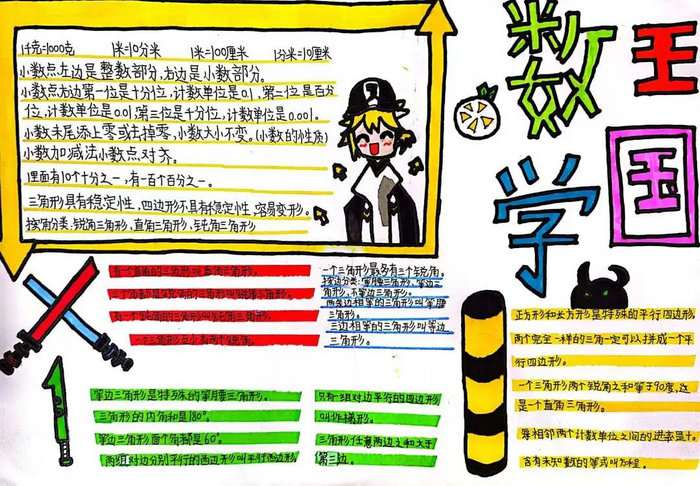 数学王国
1千克=1000克 1米=10分米 1米=100厘米 1分米=10厘米
小数点左边是整数部分,右边是小数部分。
小数点右边第一位是十分位,计数单位是0.1,第二位是百分
位,计数单位是0.01,第三位是千分位,计数单位是0.001。
小数末尾添上零或去掉零,小数大小不变。(小数的性质)
小数加减法小数点对齐。
1里面有10个十分之一,有一百个百分之一。
三角形具有稳定性,四边形不具有稳定性,容易变形。
按角分类:锐角三角形,直角三角形,钝角三角形
一个三角形最多有三个锐角。
按边分类:等腰三角形,等边三
角形,不等边三角形。
两条边相等的三角形叫等腰
三角形。
三边相等的三角形叫等边
三角形。
等边三角形是特殊的等腰三角形。
三角形的内角和是180°。
等边三角形每个角都是60°。
两组对边分别平行的四边形叫平行四边形
只有一组对边平行的四边形
叫作梯形。
三角形任意两边之和大于
第三边。
正方形和长方形是特殊的平行四边形
两个完全一样的三角一定可以拼成一个平
行四边形。
一个三角形两个锐角之和等于90度,这
是一个直角三角形。
每相邻两个计数单位之间的进率是十。
含有未知数的等式叫方程。